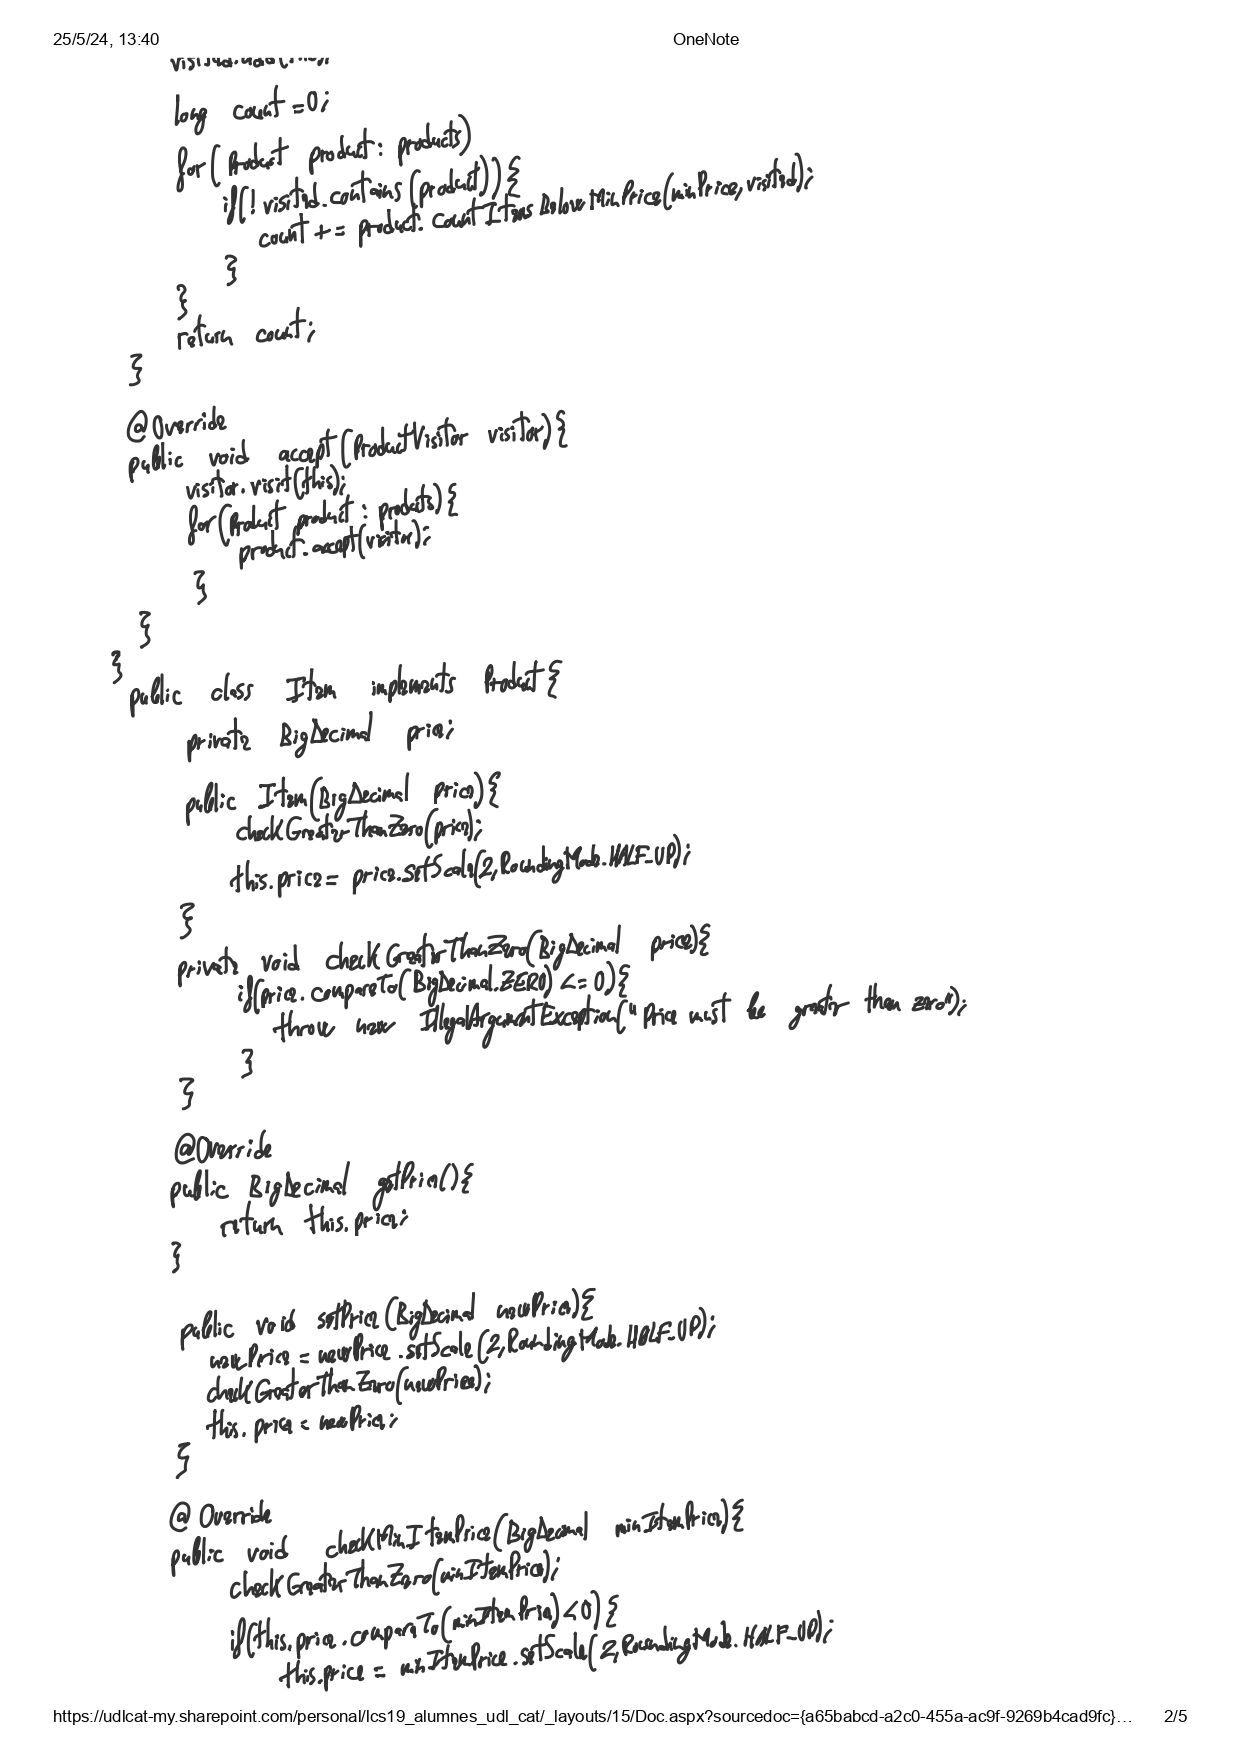 25/5/24, 13:40
OneNote
long count = 0;
for( Product product : products)
if(! visited.contains (product)) {
count += product. countItems Below MinPrice(minPrice, visited);
}
}
return count;
}
@Override
public void accept (ProductVisitor visitor) {
visitor.visit(this);
for(Product product : products) {
product.accept(visitor);
}
}
}
public class Item implements Product {
private BigDecimal price;
public Item(BigDecimal price) {
checkGreaterThanZero(price);
this.price = price.setScale(2, RoundingMode.HALF_UP);
}
private void checkGreaterThanZero(BigDecimal price) {
if(price.compareTo(BigDecimal.ZERO) <= 0) {
throw new IllegalArgumentException("Price must be greater than zero");
}
}
@Override
public BigDecimal getPrice() {
return this.price;
}
public void setPrice (BigDecimal newPrice) {
newPrice = newPrice.setScale (2, RoundingMode.HALF_UP);
checkGreaterThanZero(newPrice);
this.price = newPrice;
}
@Override
public void checkMinItemPrice(BigDecimal minItemPrice) {
checkGreaterThanZero(minItemPrice);
if(this.price.compareTo(minItemPrice) < 0) {
this.price = minItemPrice.setScale(2, RoundingMode.HALF_UP);
https://udlcat-my.sharepoint.com/personal/lcs19_alumnes_udl_cat/_layouts/15/Doc.aspx?sourcedoc={a65babcd-a2c0-455a-ac9f-9269b4cad9fc}…
2/5